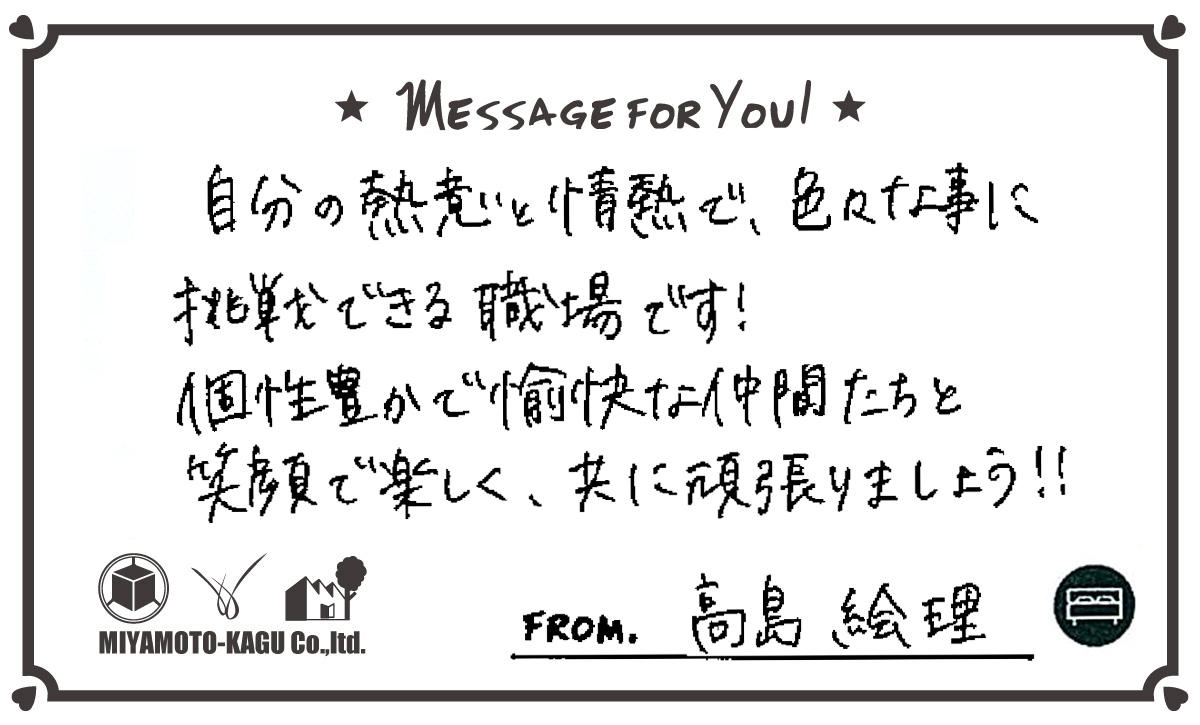 ★ MESSAGE FOR YOU! ★
自分の熱意と情熱で、色々な事に
挑戦できる職場です!
個性豊かで愉快な仲間たちと
笑顔で楽しく、共に頑張りましょう!!
MIYAMOTO-KAGU Co.,ltd.
FROM. 高島 絵理